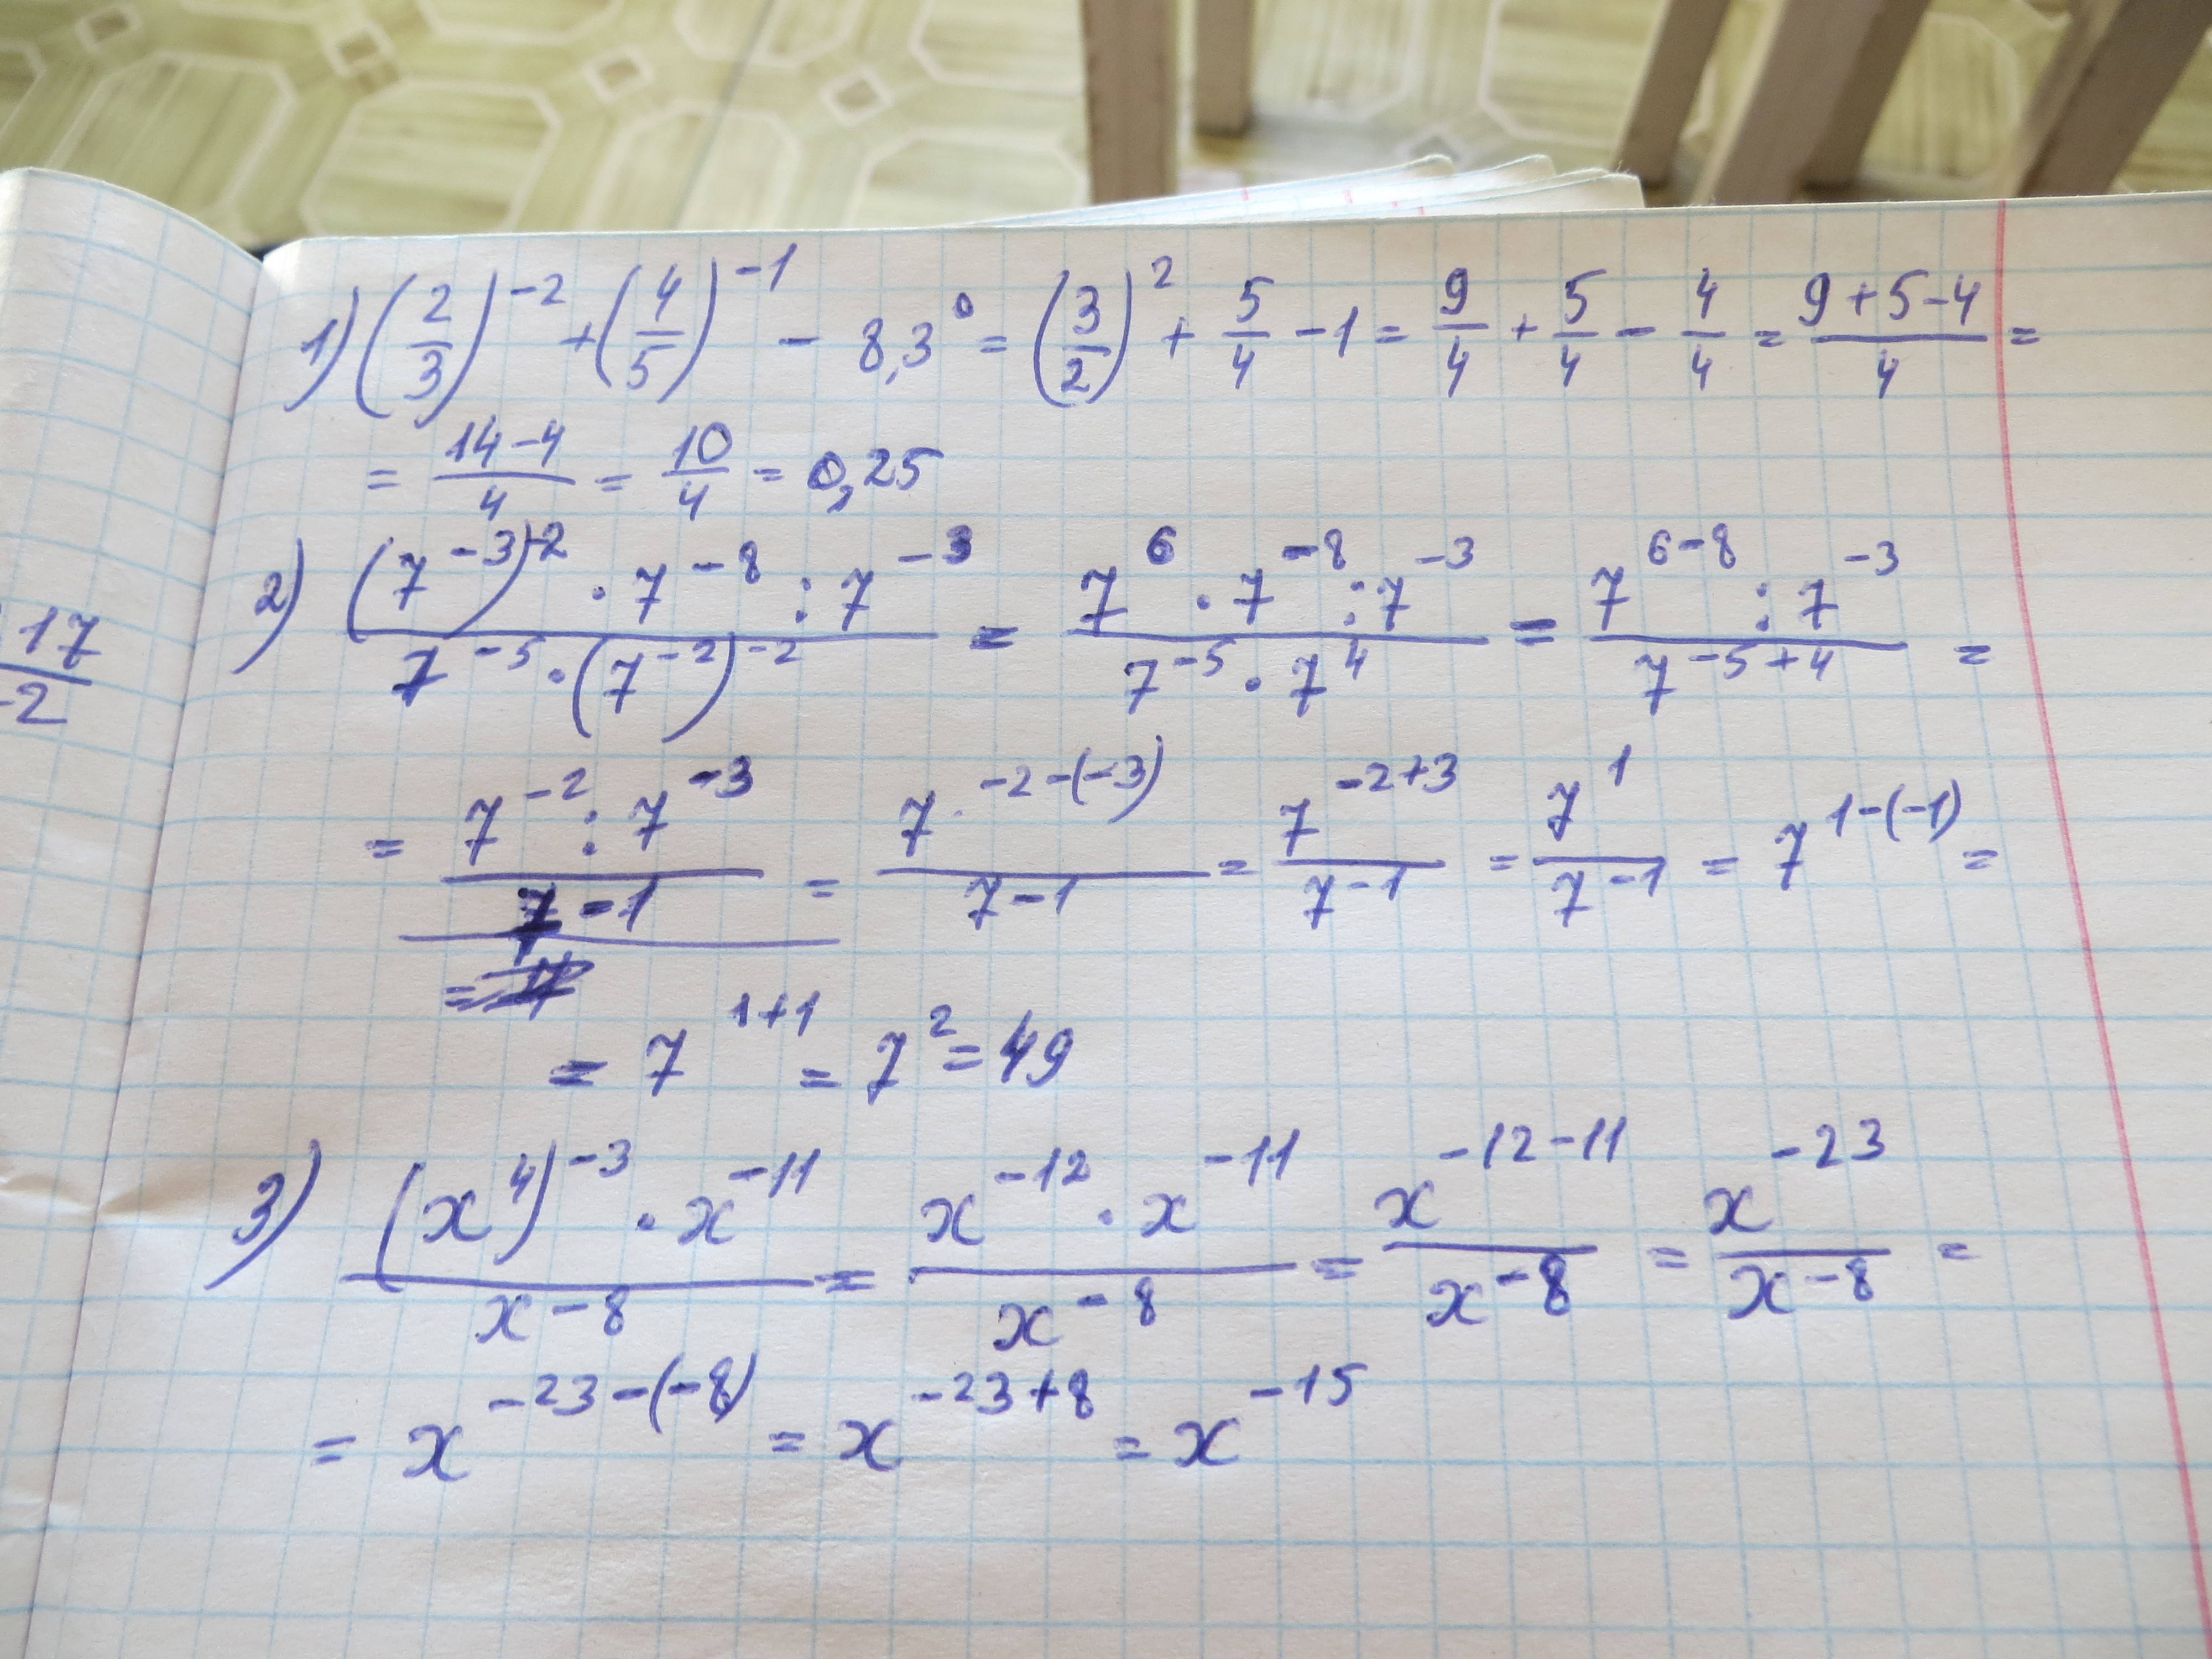 17
-2
1) (2/3)^-2 + (4/5)^-1 - 8,3^0 = (3/2)^2 + 5/4 - 1 = 9/4 + 5/4 - 4/4 = (9+5-4)/4 =
= (14-4)/4 = 10/4 = 0,25
2) ((7^-3)^-2 · 7^-8 : 7^-3)/(7^-5 · (7^-2)^-2) = (7^6 · 7^-8 : 7^-3)/(7^-5 · 7^4) = (7^(6-8) : 7^-3)/(7^(-5+4)) =
= (7^-2 : 7^-3)/(7^-1) = (7^(-2-(-3)))/(7^-1) = (7^(-2+3))/(7^-1) = (7^1)/(7^-1) = 7^(1-(-1)) =
= 7^(1+1) = 7^2 = 49
3) ((x^4)^-3 · x^-11)/(x^-8) = (x^-12 · x^-11)/(x^-8) = (x^(-12-11))/(x^-8) = (x^-23)/(x^-8) =
= x^(-23-(-8)) = x^(-23+8) = x^-15